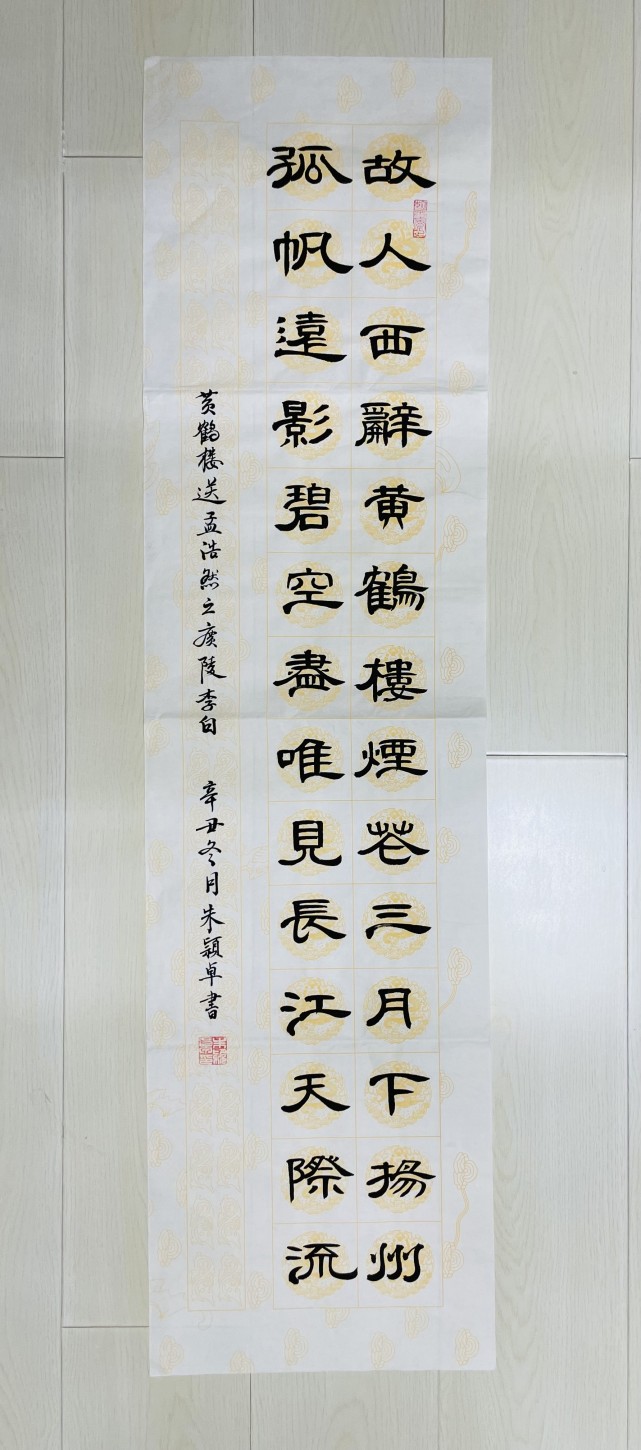 故人西辭黄鶴樓煙花三月下揚州
孤帆遠影碧空盡唯見長江天際流
黄鶴楼送孟浩然之廣陵李白 辛丑冬月朱颖卓書